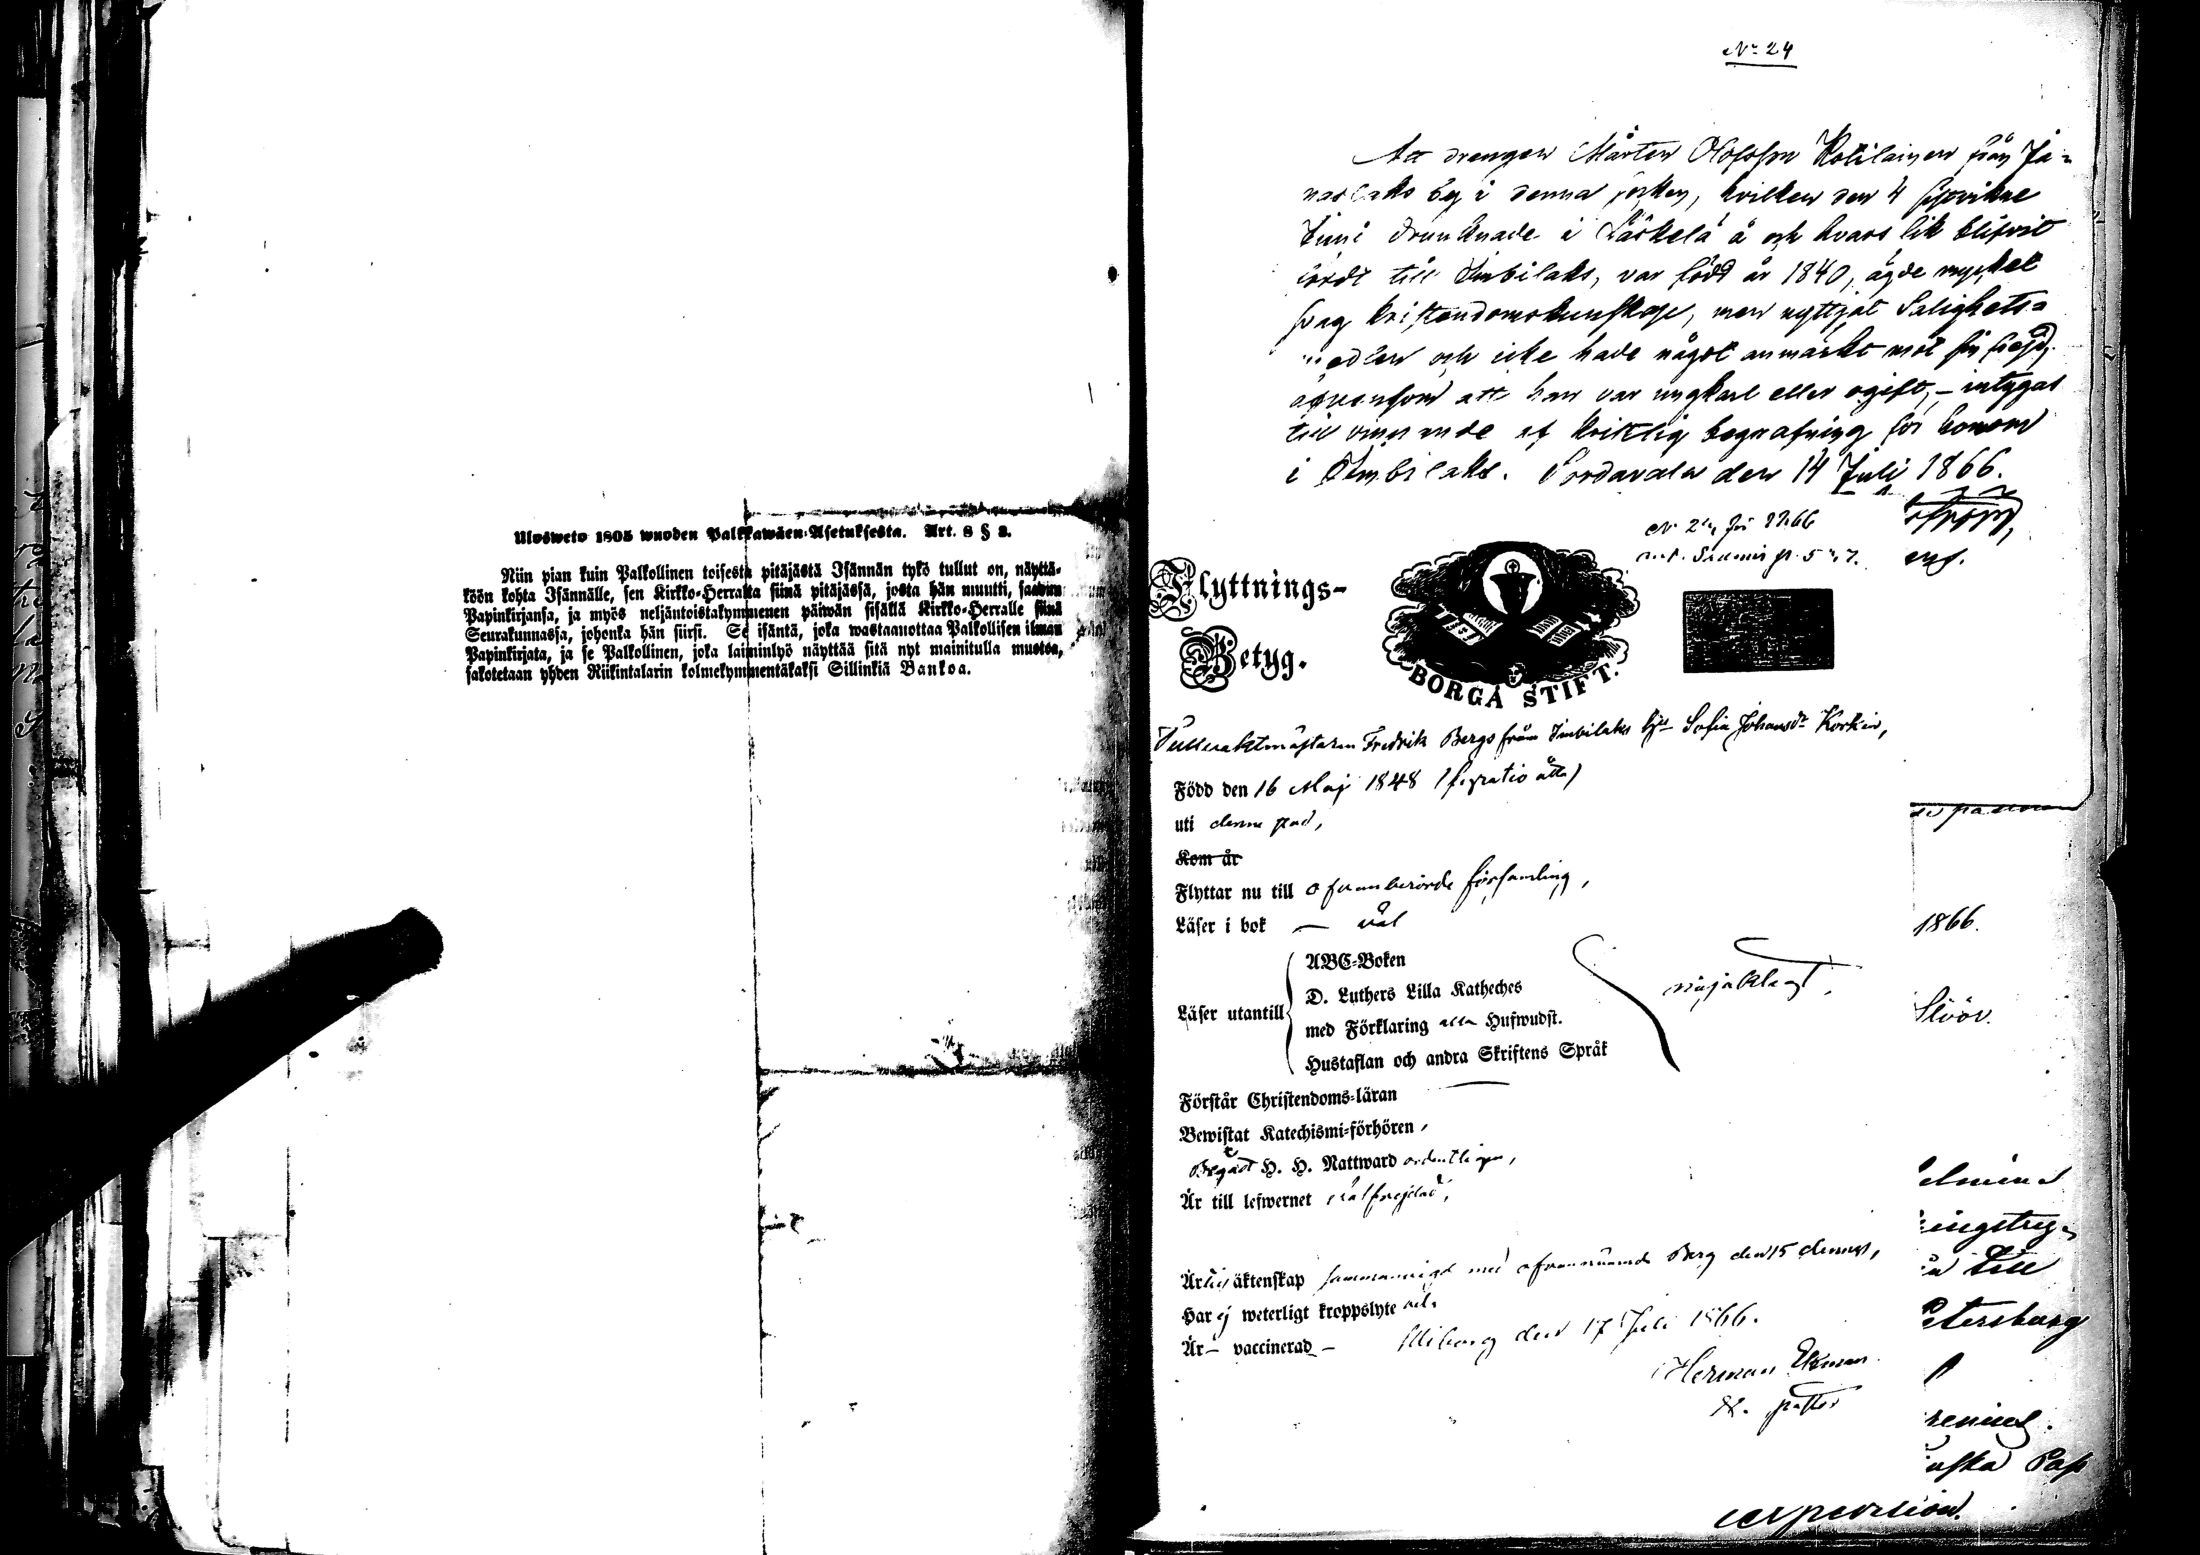 Ulosweto 1805 wuoden Palkkawäen-Asetuksesta. Art. 8 § 3.
Niin pian kuin Palkollinen toisesta pitäjästä Isännän tykö tullut on, näyttä-
köön kohta Isännälle, sen Kirkko-Herralta siinä pitäjässä, josta hän muutti, saadun
Papinkirjansa, ja myös neljäntoistakymmenen päiwän sisällä Kirkko-Herralle siinä
Seurakunnassa, johonka hän siirsi. Se isäntä, joka wastaanottaa Palkollisen ilman
Papinkirjata, ja se Palkollinen, joka laiminlyö näyttää sitä nyt mainitulla muotoa,
sakotetaan yhden Riikintalarin kolmekymmentäkaksi Sillinkiä Bankoa.
No 24
Att drengen Mårten Olofsson Kotilainen från Jä-
naslaks by i denna socken, hvilken den 4 sistvikne
Juni drunknade i Läskelä å och hvars lik blifvit
fördt till Imbilaks, var född år 1840, ägde mycket
svag kristendomskunskap, men nyttjat Salighets-
medlen och icke hade något anmärkt mot sin frejd,
äfvensom att han var ungkarl eller ogift, – intygas
till vinnande af kristlig begrafning för honom
i Imbilaks. Sordavala den 14 Juli 1866.
Flyttnings-
Betyg.
BORGÅ STIFT.
Fredrik Bergs från Imbilaks Sofia Johansdr
Född den 16 Maj 1848
uti denna stad,
Kom år
Flyttar nu till ofvanberörde församling,
Läser i bok — väl
Läser utantill
ABC-Boken
D. Luthers Lilla Katheches
med Förklaring alla Hufwudst.
Hustaflan och andra Skriftens Språk
nöjaktigt,
1866.
Slöör.
Förstår Christendoms-läran
Bewistat Katechismi-förhören
Begått H. H. Nattward ordentligen,
Är till lefwernet välfrejdad,
Är i äktenskap sammanvigd med ofvannämnde Berg den 15 dennes,
Har ej weterligt kroppslyte
Är – vaccinerad – Wiborg den 17 Juli 1866.
Herman Ekman
till
etersburg